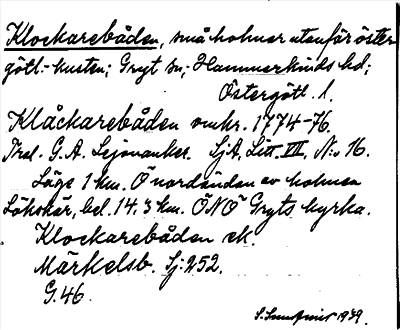 Klockarebåden, små holmar utanför öster-
götl.-kusten; Gryt sn; Hammarkinds hd;
Östergötl. l.
Klåckarebåden omkr. 1774-76.
G. A. Leijonancker. SjA, Litt. III, N:o 16.
Läge 1 km. Ö nordändan av holmen
Lökskär, bel. 14,3 km. ÖNÖ Gryts kyrka.
Klockarebåden ek.
Märkelsb. Sj. 252.
G. 46.
1939.